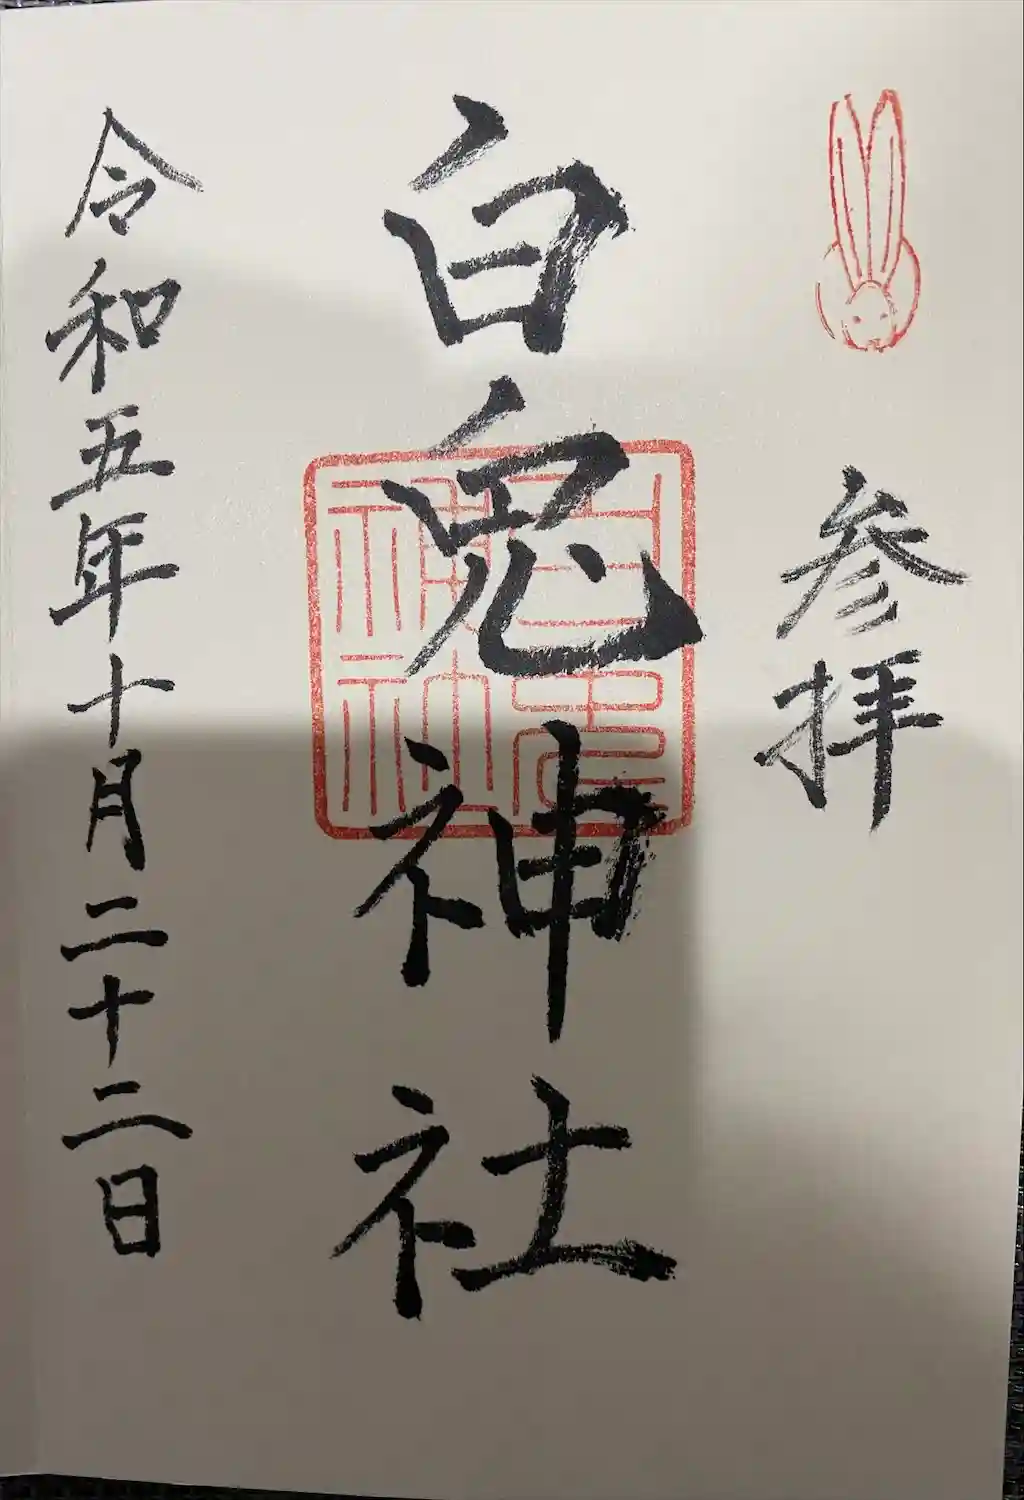 参拝
白兎神社
令和五年十月二十二日
白兎神社